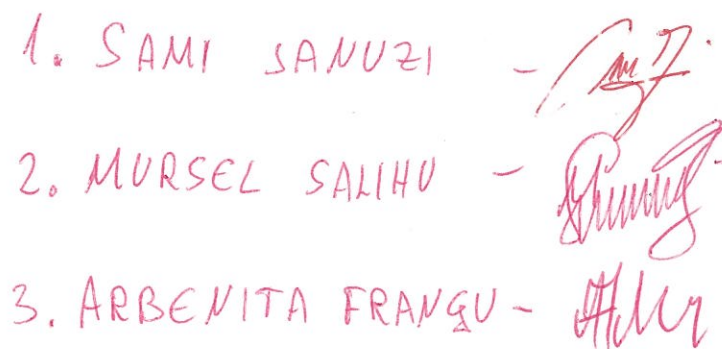 1. SAMI JANUZI -
2. MURSEL SALIHU -
3. ARBENITA FRANGU -